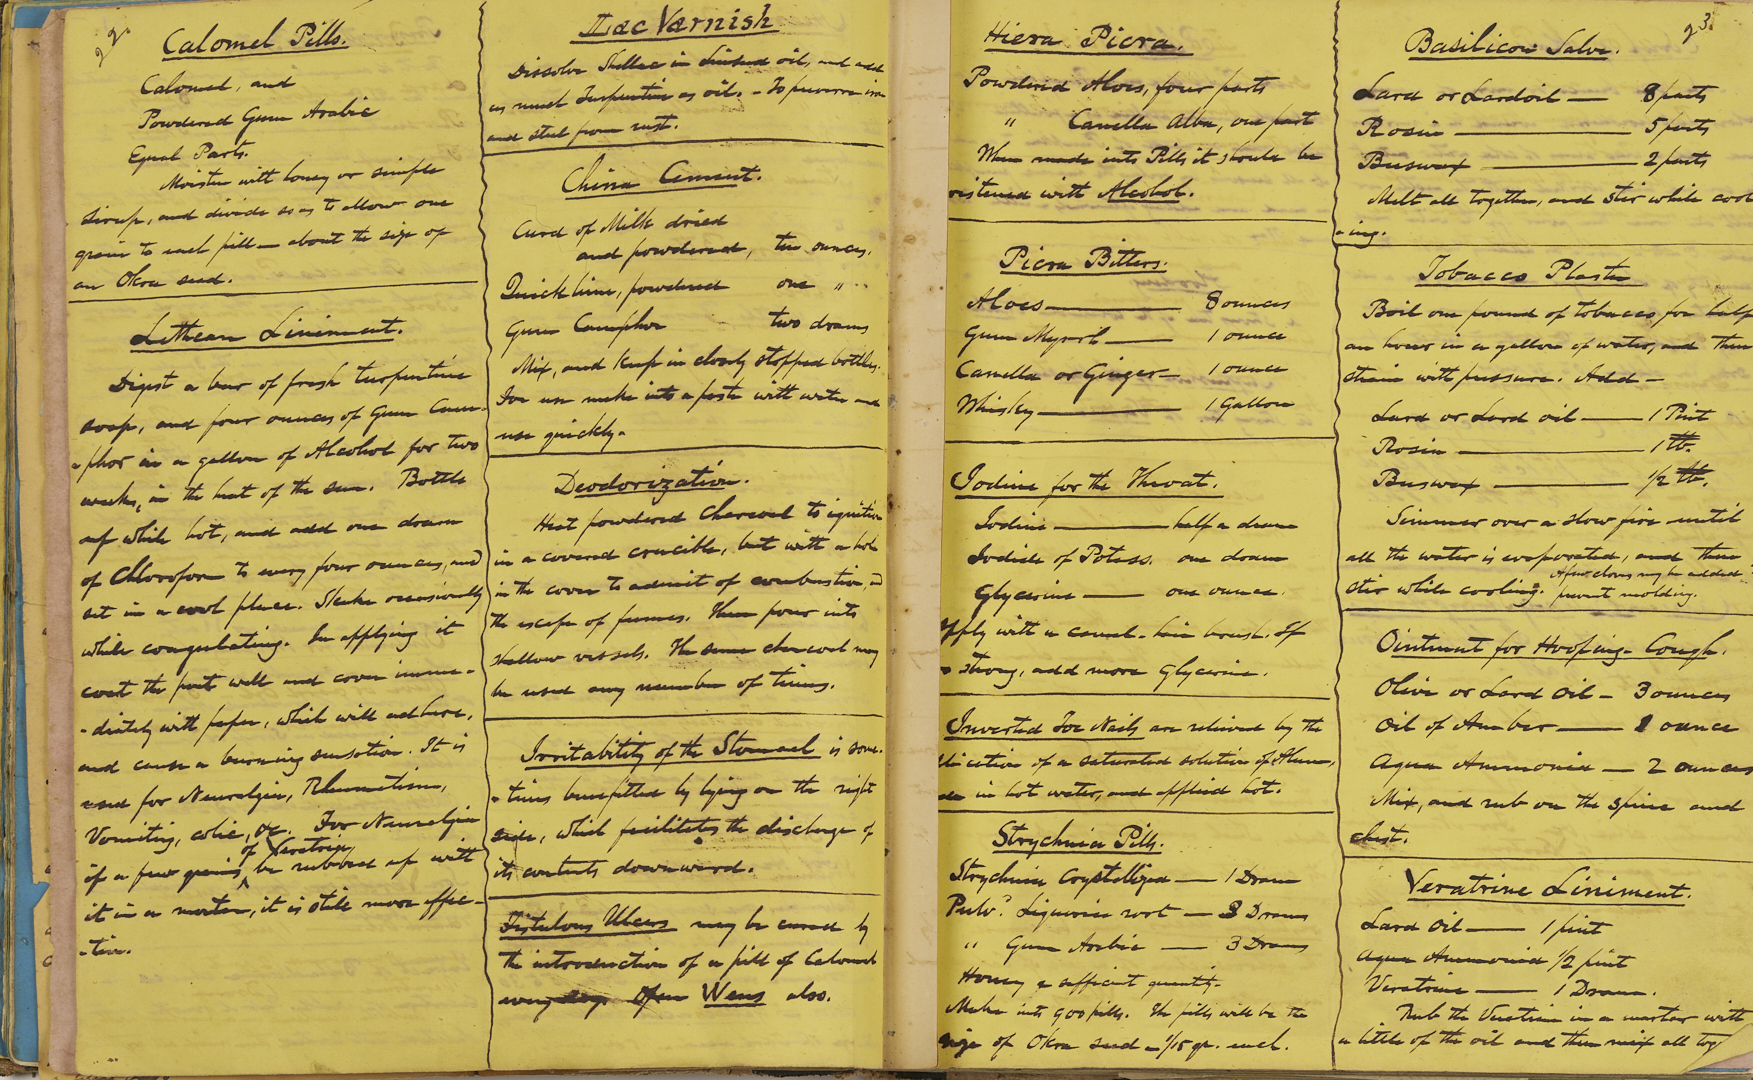 22.
Calomel Pills.
Calomel, and
Powdered Gum Arabic
Equal Parts.
Moisten with honey or simple
sirup, and divide so as to allow one
grain to each pill — about the size of
an Okra seed.
Lethean Liniment.
Digest a bar of fresh turpentine
soap, and four ounces of Gum Cam-
-phor in a gallon of Alcohol for two
weeks, in the heat of the sun. Bottle
up while hot, and add one dram
of Chloroform to every four ounces, and
set in a cool place. Shake occasionally
while coagulating. In applying it
coat the part well and cover imme-
-diately with paper, which will adhere,
and cause a burning sensation. It is
used for Neuralgia, Rheumatism,
Vomiting, colic, &c. For Neuralgia
of Veratria
if a few grains, be rubbed up with
it in a mortar, it is still more effec-
-tive.
Lac Varnish
Dissolve Shellac in linseed oil, and add
as much Turpentine as oil. - To preserve iron
and steel from rust.
China Cement.
Curd of Milk dried
and powdered, ten ounces.
Quick lime, powdered one "
Gum Camphor two drams
Mix, and keep in closely stopped bottles.
For use make into a paste with water and
use quickly.
Deodorization.
Heat powdered Charcoal to ignition
in a covered crucible, but with a hole
in the cover to admit of combustion, and
the escape of fumes. Then pour into
shallow vessels. The same charcoal may
be used any number of times.
Irritability of the Stomach is some-
-times benefitted by lying on the right
side, which facilitates the discharge of
its contents downward.
Fistulous Ulcers may be cured by
the introduction of a pill of Calomel
every day. Open Wens also.
Hiera Picra.
Powdered Aloes, four parts
" Canella Alba, one part
When made into Pills it should be
oistened with Alcohol.
Picra Bitters.
Aloes — 8 ounces
Gum Myrrh — 1 ounce
Canella or Ginger — 1 ounce
Whisky — 1 Gallon
Iodine for the Throat.
Iodine — half a dram
Iodide of Potass. one dram
Glycerine — one ounce.
Apply with a camel-hair brush. If
strong, add more Glycerine.
Inverted Toe Nails are relieved by the
plication of a saturated solution of Alum,
in hot water, and applied hot.
Strychnia Pills.
Strychnia Crystallized — 1 Dram
Pulv.d Liquorice root — 3 Drams
" Gum Arabic — 3 Drams
Honey a sufficient quantity.
Make into 900 pills. The pills will be the
size of Okra seed - 1/15 gr. each.
23.
Basilicon Salve.
Lard or Lard oil — 8 parts
Rosin — 5 parts
Beeswax — 2 parts
Melt all together, and stir while cool
-ing.
Tobacco Plaster
Boil one pound of tobacco for half
an hour in a gallon of water, and then
strain with pressure. Add —
Lard or Lard oil — 1 Pint
Rosin — 1 lb.
Beeswax — 1/2 lb.
Simmer over a slow fire until
all the water is evaporated, and then
stir while cooling. A few cloves may be added
prevent molding.
Ointment for Hooping-Cough.
Olive or Lard Oil — 3 ounces
Oil of Amber — 1 ounce
Aqua Ammonia — 2 ounces
Mix, and rub on the spine and
chest.
Veratrine Liniment.
Lard Oil — 1 pint
Aqua Ammonia 1/2 pint
Veratrine — 1 Dram.
Rub the Veratrine in a mortar with
a little of the oil and then mix all tog